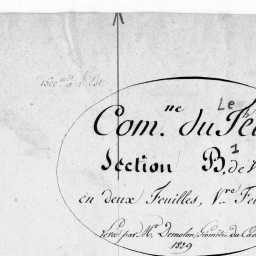 Le
Com.ne du
Section B 1 de
en deux Feuilles, 1.re
Levé par Mr Demalin, Géomètre du
1829